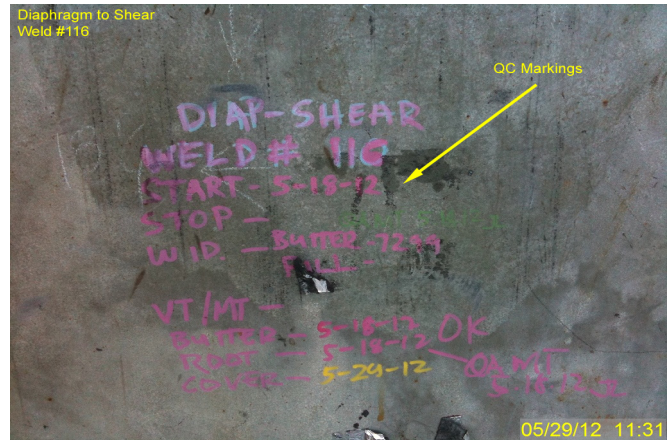 Diaphragm to Shear
Weld #116
QC Markings
DIAP-SHEAR
WELD # 116
START - 5-18-12
STOP -
W.ID. - BUTTER - 7299
FILL -
VT/MT -
BUTTER - 5-18-12 OK
ROOT - 5-18-12
OK MT
COVER - 5-29-12
5-18-12
05/29/12 11:31